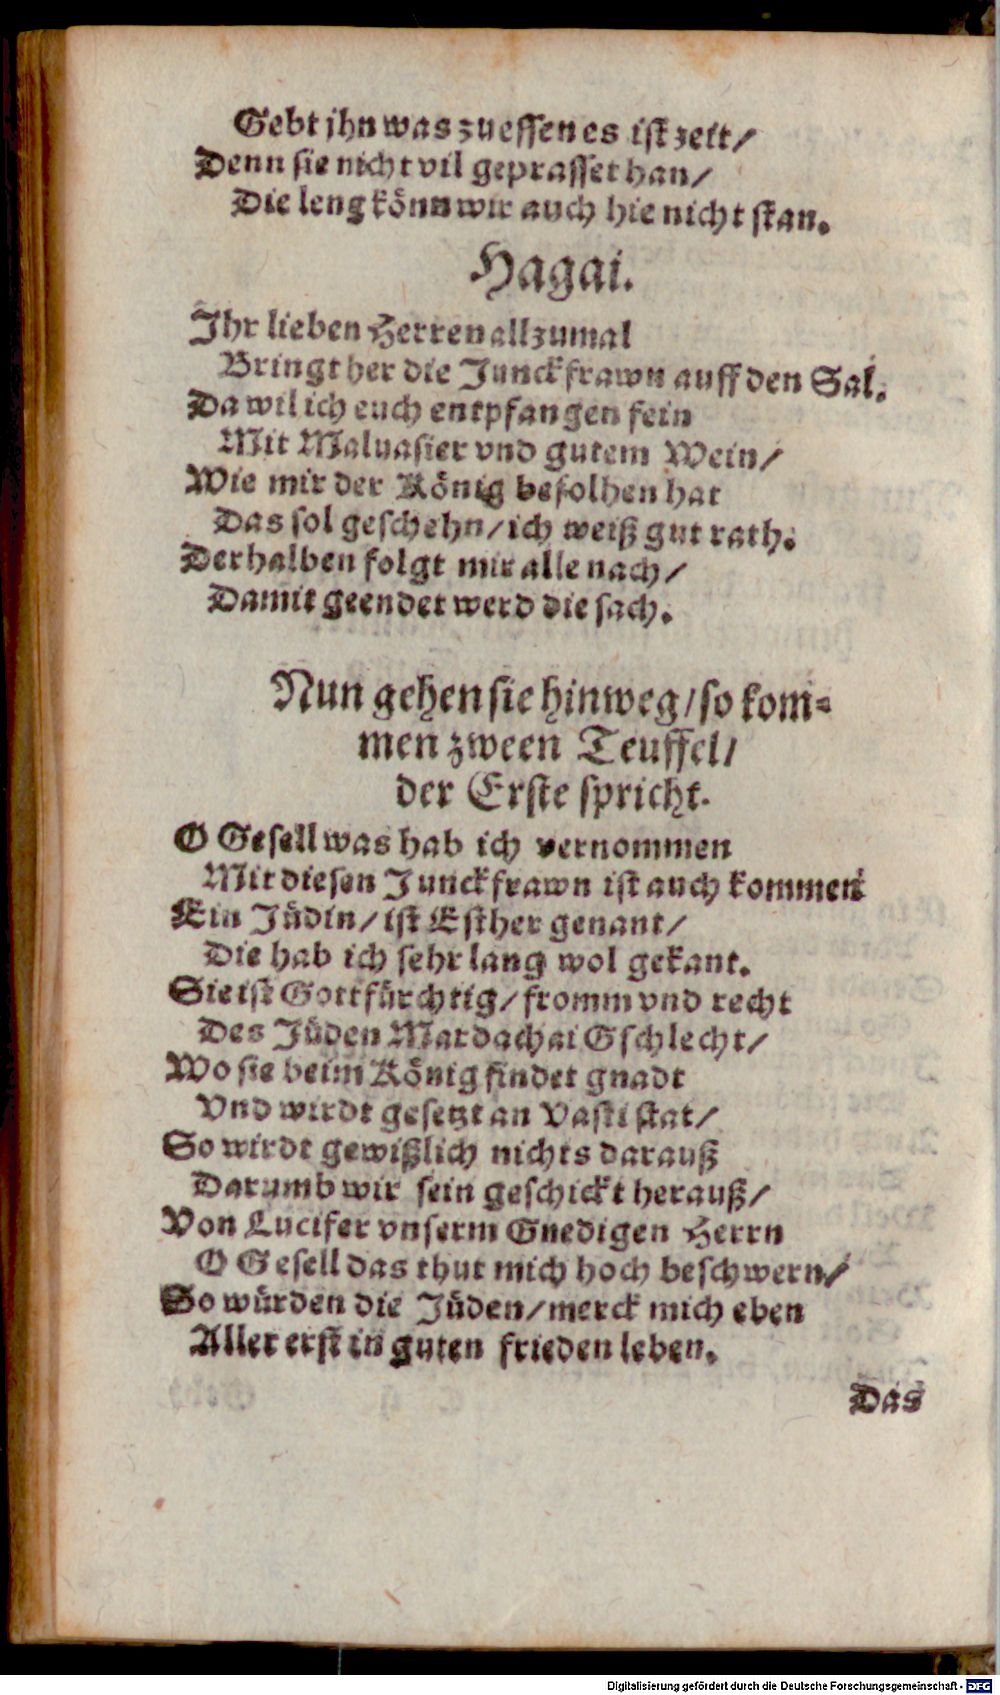 Gebt jhn was zuessen es ist zeit/
Denn sie nicht vil geprasset han/
Die leng könn wir auch hie nicht stan.
Hagai.
Ihr lieben Herren allzumal
Bringt her die Junckfrawn auff den Sal.
Da wil ich euch entpfangen fein
Mit Maluasier vnd gutem Wein/
Wie mir der König befolhen hat
Das sol geschehn/ ich weiß gut rath.
Derhalben folgt mir alle nach/
Damit geendet werd die sach.
Nun gehen sie hinweg/ so kom-
men zween Teuffel/
der Erste spricht.
O Gesell was hab ich vernommen
Mit diesen Junckfrawn ist auch kommen
Ein Jüdin/ ist Esther genant/
Die hab ich sehr lang wol gekant.
Sie ist Gottfürchtig/ fromm vnd recht
Des Jüden Mardachai Gschlecht/
Wo sie beim König findet gnadt
Vnd wirdt gesetzt an Vasti stat/
So wirdt gewißlich nichts darauß
Darumb wir sein geschickt herauß/
Von Lucifer vnserm Gnedigen Herrn
O Gesell das thut mich hoch beschwern/
So würden die Jüden/ merck mich eben
Aller erst in guten frieden leben.
Das
Digitalisierung gefördert durch die Deutsche Forschungsgemeinschaft - DFG